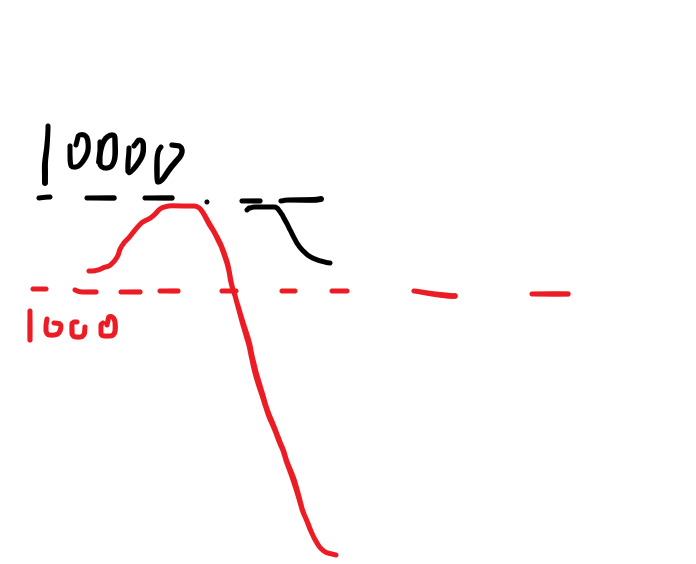 10000
1000